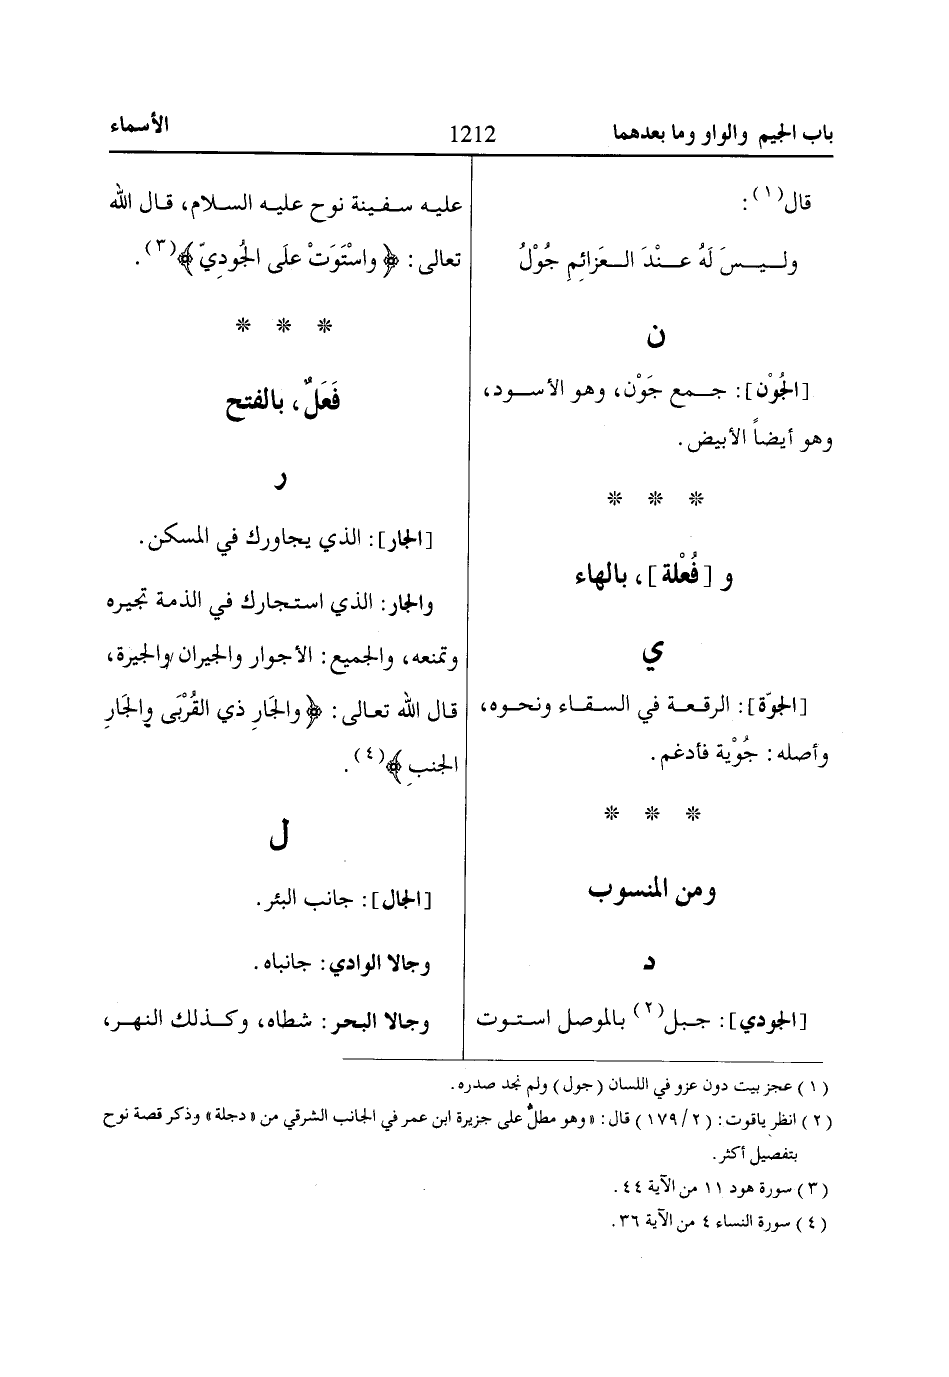 باب الجيم والواو وما بعدهما
1212
الأسماء
قال(١):
ولـيـسَ لَهُ عـنْدَ الـعَزائِمِ جُوْلُ
ن
[الجُوْن]: جمع جَوْن، وهو الأسود،
وهو أيضاً الأبيض.
* * *
و [فُعْلة]، بالهاء
ي
[الجوّة]: الرقعة في السقاء ونحوه،
وأصله: جُوْية فأدغم.
* * *
ومن المنسوب
د
[الجودي]: جبل(٢) بالموصل استوت
عليه سفينة نوح عليه السلام، قال الله
تعالى: ﴿واسْتَوَتْ علَى الجُوديّ﴾(٣).
* * *
فَعَلٌ، بالفتح
ر
[الجار]: الذي يجاورك في المسكن.
والجار: الذي استجارك في الذمة تجيره
وتمنعه، والجميع: الأجوار والجيران والجيرة،
قال الله تعالى: ﴿والجَارِ ذي القُرْبَى والجَارِ
الجنبِ﴾(٤).
ل
[الجال]: جانب البئر.
وجالا الوادي: جانباه.
وجالا البحر: شطاه، وكذلك النهر،
(١) عجز بيت دون عزو في اللسان (جول) ولم نجد صدره.
(٢) انظر ياقوت: (١٧٩/٢) قال: «وهو مطلٌّ على جزيرة ابن عمر في الجانب الشرقي من «دجلة» وذكر قصة نوح
بتفصيل أكثر.
(٣) سورة هود ١١ من الآية ٤٤.
(٤) سورة النساء ٤ من الآية ٣٦.